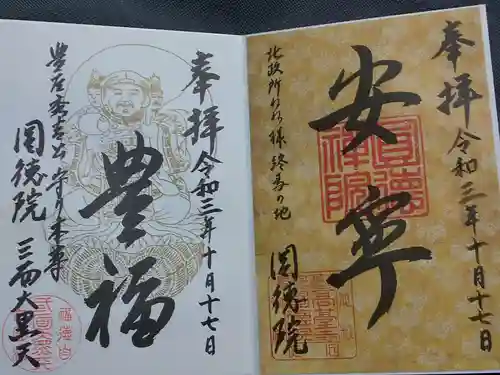 奉拝
令和三年十月十七日
安寧
北政所ねね様終焉の地
圓徳院
奉拝
令和三年十月十七日
豊福
豊臣秀吉公守り本尊
圓徳院
三面大黒天